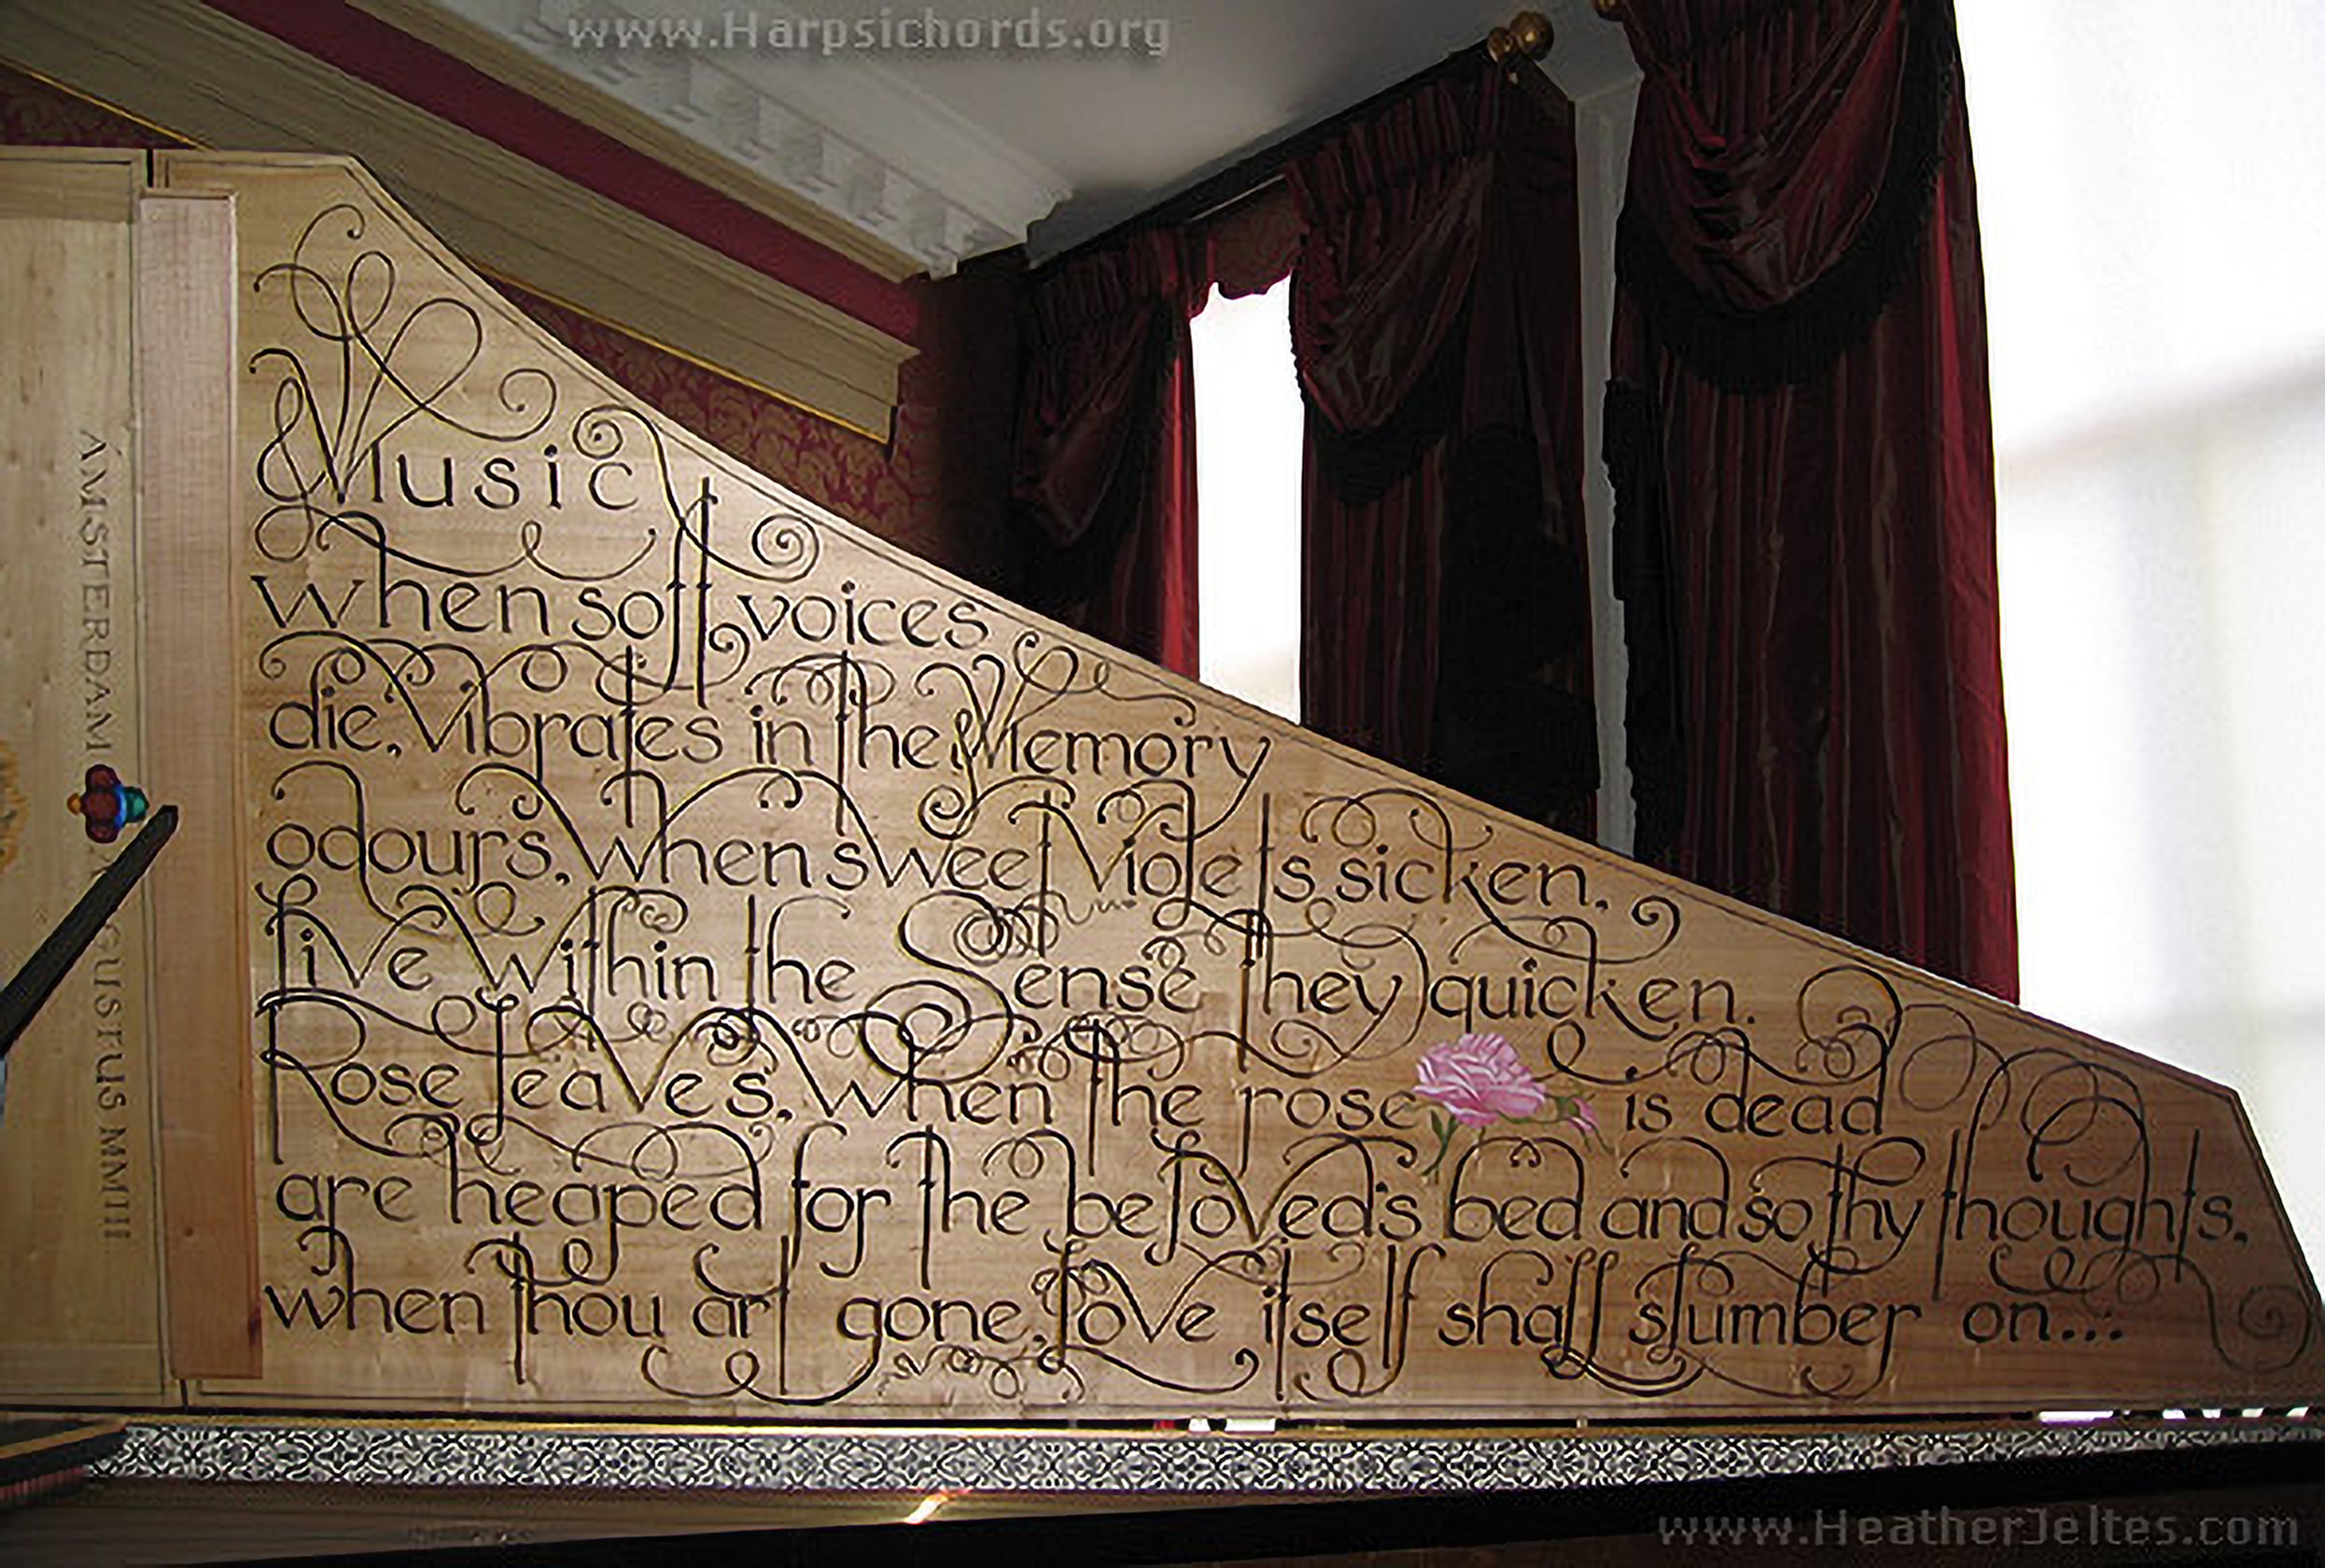 www.Harpsichords.org
Music
when soft voices
die, Vibrates in the Memory
odours, when sweet Violets sicken,
Live Within the Sense they quicken.
Rose leaves, when the rose is dead
are heaped for the beloved's bed and so thy thoughts,
when thou art gone, Love itself shall slumber on...
AMSTERDAM
GUSTUS MMIII
www.HeatherJeltes.com